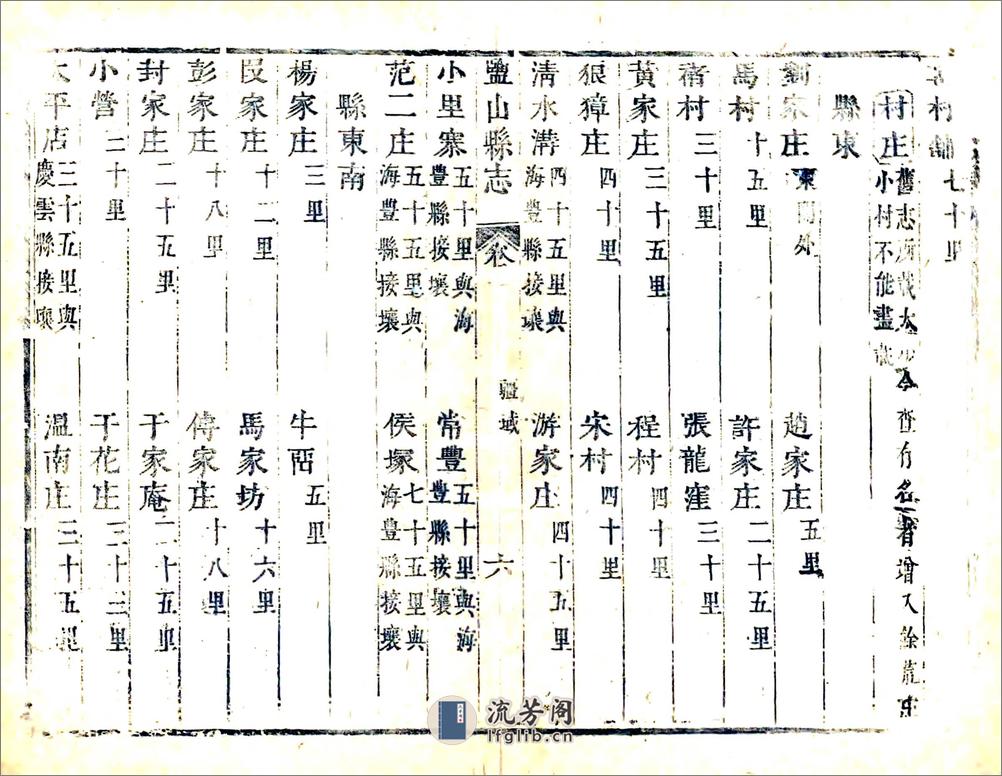 村舖七十里
村庄舊志所載大小今查有名者增入餘荒庄
小村不能盡載
縣東
劉家庄東門外 趙家庄五里
馬村十五里 許家庄二十五里
三十里 張龍窪三十里
黄家庄三十五里 程村四十里
狼獐庄四十里 宋村四十里
清水溝四十五里與海豐縣接壤 游家庄四十五里
鹽山縣志 卷 疆域 六
小里寨五十里與海豐縣接壤 常豐五十里與海豐縣接壤
范二庄五十五里與海豐縣接壤 侯塚七十五里與海豐縣接壤
縣東南
楊家庄三里 牛 五里
段家庄十二里 馬家坊十六里
彭家庄十八里 傅家庄十八里
封家庄二十五里 于家庵二十五里
小營三十里 千花庄三十三里
太平店三十五里與慶雲縣接壤 溫南庄三十五里
流芳阁
lfglib.cn